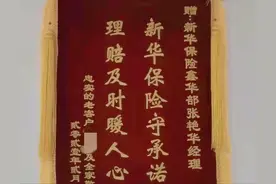 赠：新华保险鑫华部张艳华经理
新华保险守承诺
理赔及时暖人心
忠实的老客户 及全家
贰零贰壹年贰月